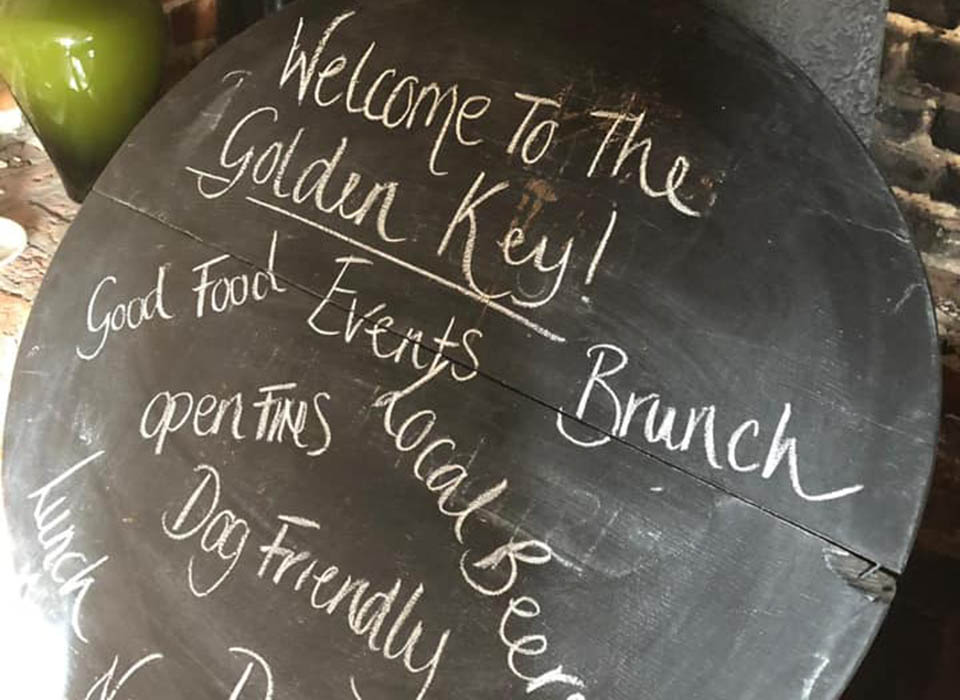 Welcome To The
Golden Key!
Good Food
Events
Brunch
open FIRES
Local Beers
Lunch
Dog Friendly